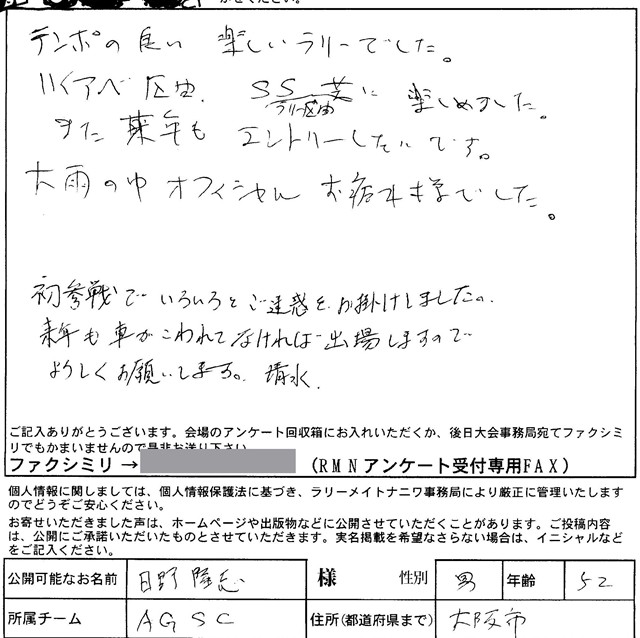 かせください。
テンポの良い 楽しいラリーでした。
ハイアベ区間、SS 共に 楽しめました。
ラリー区間
また来年も エントリーしたいです。
大雨の中 オフィシャル お疲れ様でした。
初参戦で いろいろと ご迷惑を お掛けしましたが、
来年も 車が こわれて なければ 出場しますので
よろしく お願いします。 清水.
ご記入ありがとうございます。会場のアンケート回収箱にお入れいただくか、後日大会事務局宛てファクシミ
リでもかまいませんので是非お送り下さい。
ファクシミリ → (RMNアンケート受付専用FAX)
個人情報に関しましては、個人情報保護法に基づき、ラリーメイトナニワ事務局により厳正に管理いたします
のでどうぞご安心ください。
お寄せいただきました声は、ホームページや出版物などに公開させていただくことがあります。ご投稿内容
は、公開にご承諾いただいたものとさせていただきます。実名掲載を希望なさらない場合は、イニシャルなど
をご記入ください。
公開可能なお名前 日野 隆志 様 性別 男 年齢 52
所属チーム AGSC 住所(都道府県まで) 大阪市